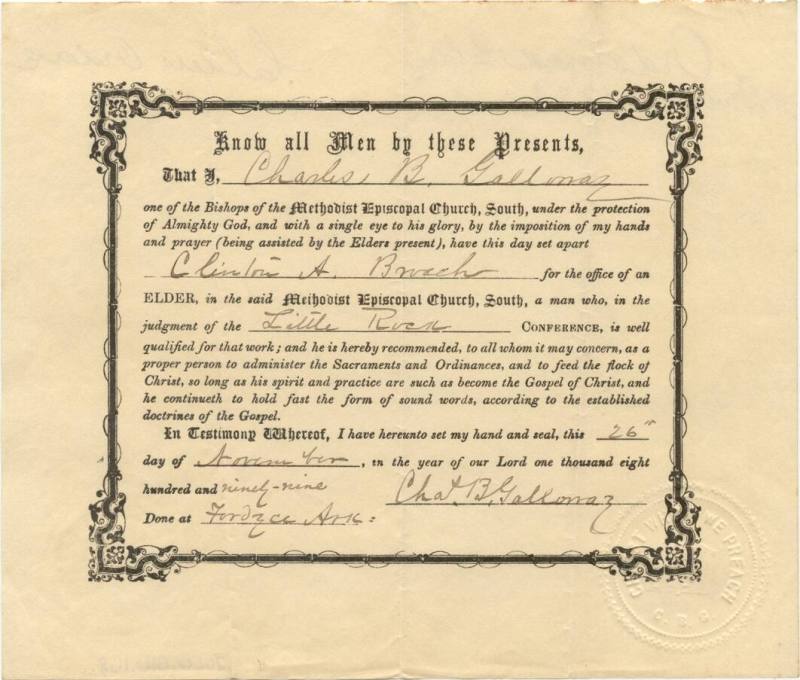 Know all Men by these Presents,
That I, Charles B. Galloway
one of the Bishops of the Methodist Episcopal Church, South, under the protection
of Almighty God, and with a single eye to his glory, by the imposition of my hands
and prayer (being assisted by the Elders present), have this day set apart
Clinton A. Broach for the office of an
ELDER, in the said Methodist Episcopal Church, South, a man who, in the
judgment of the Little Rock CONFERENCE, is well
qualified for that work; and he is hereby recommended, to all whom it may concern, as a
proper person to administer the Sacraments and Ordinances, and to feed the flock of
Christ, so long as his spirit and practice are such as become the Gospel of Christ, and
he continueth to hold fast the form of sound words, according to the established
doctrines of the Gospel.
In Testimony Whereof, I have hereunto set my hand and seal, this 26"
day of November, in the year of our Lord one thousand eight
hundred and ninety-nine
Chas. B. Galloway
Done at Fordyce Ark:
PREACH
C. B. G.